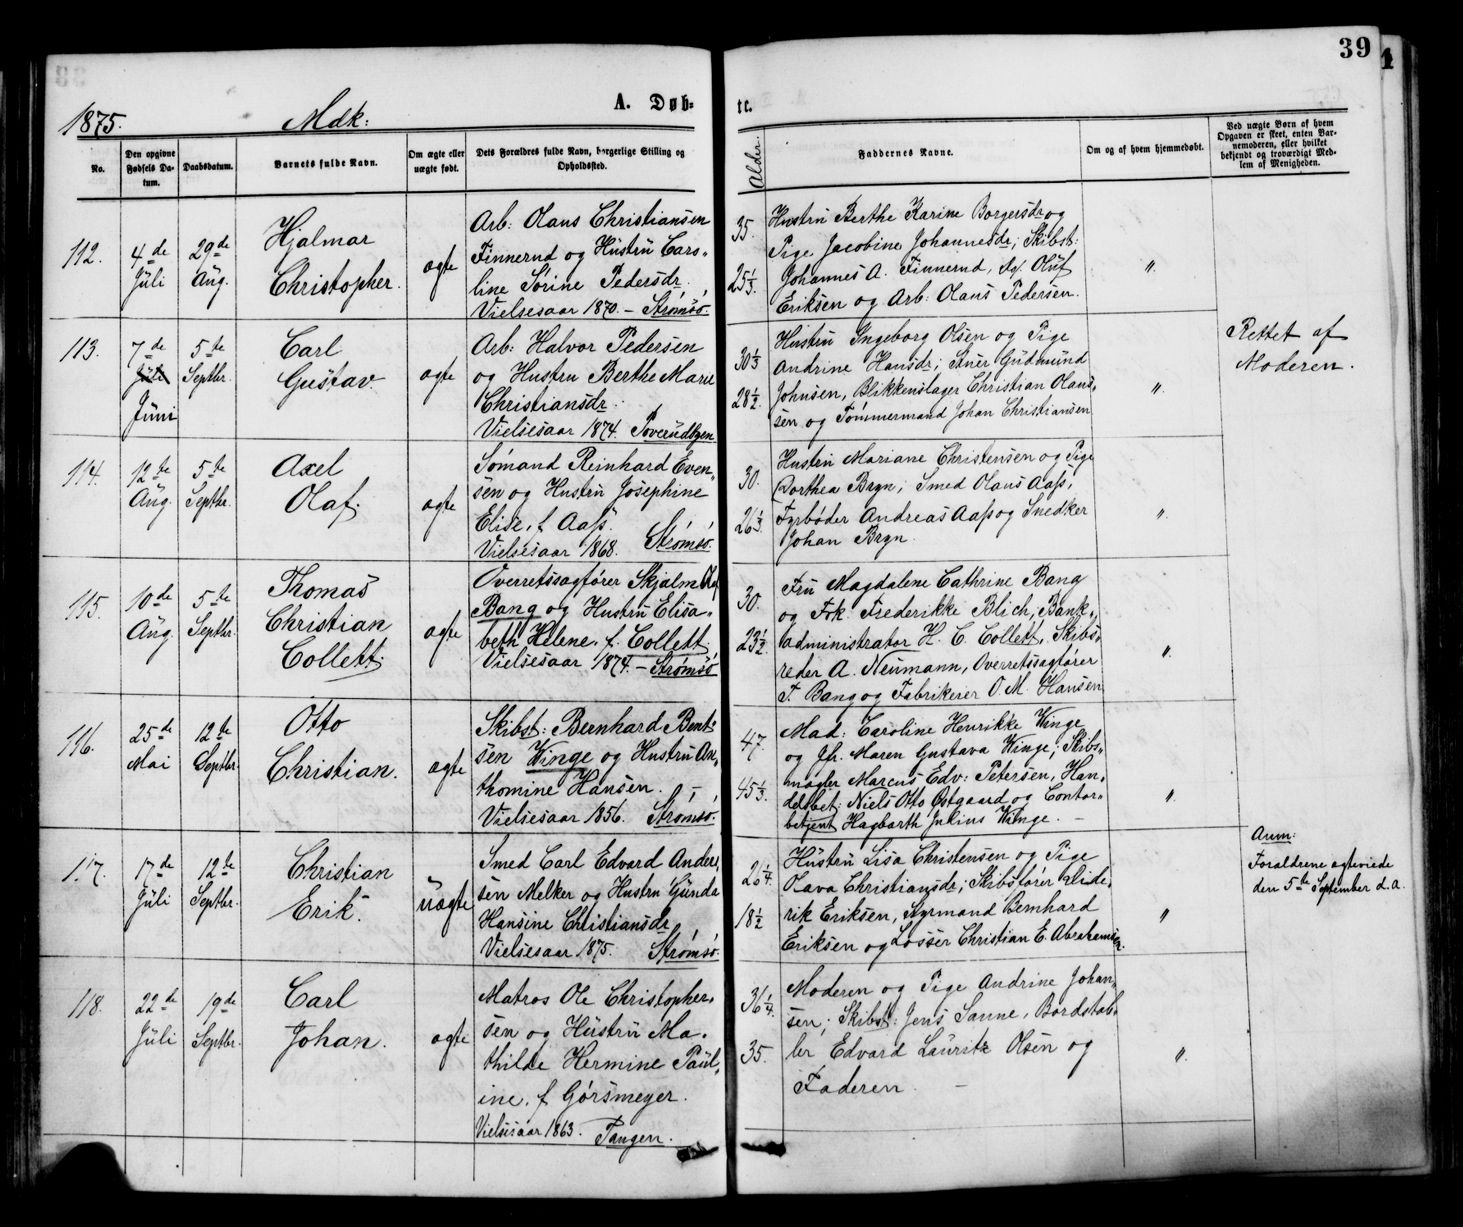 39
1
1875.
Mdk:
A. Døb-
te.
No.
Den opgivne Fødsels Da-tum.
Daabsdatum.
Barnets fulde Navn.
Om ægte eller uægte født.
Dets Forældres fulde Navn, borgerlige Stilling og Opholdssted.
Alder.
Faddernes Navne.
Om og af hvem hjemmedøbt.
Ved uægte Børn af hvem
Opgaven er skeet, enten Bar-
nemoderen, eller hvilket
bekjendt og troværdigt Med-
lem af Menigheden.
112.
4de
Juli
29de
Aug.
Hjalmar
Christopher.
ægte
Arb: Olaus Christiansen
Finnerud og Hustru Caro-
line Sørine Pedersdr.
Vielsesaar 1870. – Strømsø.
35.
25 1/3.
Hustru Berthe Karine Borgersdr og
Pige Jacobine Johannesdr; Skibst:
Johannes A. Finnerud, Oluf
Eriksen og Arb: Olaus Pedersen.
"
113.
7de
Juli
Juni
5te
Septbr.
Carl
Gustav.
ægte
Arb: Halvor Pedersen
og Hustru Berthe Marie
Christiansdr.
Vielsesaar 1874.
30 1/3
28 1/2.
Hustru Ingeborg Olsen og Pige
Andrine Hansdr; Stuer Gudmund
Johnsen, Blikkenslager Christian Olaus-
sen og Tømmermand Johan Christiansen
"
Rettet af
Moderen.
114.
12te
Aug.
5te
Septbr.
Axel
Olaf.
ægte
Sømand Reinhard Even-
sen og Hustru Josephine
Elise, f. Aass.
Vielsesaar 1868. Strømsø.
30.
26 1/3.
Hustru Mariane Christensen og Pige
Dorthea Bryn; Smed Olaus Aass,
Fyrbøder Andreas Aass og Snedker
Johan Bryn.
"
115.
10de
Aug.
5te
Septbr.
Thomas
Christian
Collett.
ægte
Overretssagfører Skjalm
Bang og Hustru Elisa-
beth Helene, f. Collett
Vielsesaar 1874. – Strømsø
30.
23 1/2.
Fru Magdalene Cathrine Bang
og Frk. Frederikke Blich; Bank-
administrator H. C. Collett, Skibs-
reder A. Neumann, Overretssagfører
T. Bang og Fabrikeier O. M. Hansen
"
116.
25de
Mai
12te
Septbr.
Otto
Christian.
ægte
Skibst: Bernhard Bent-
sen Winge og Hustru An-
thomine Hansen. –
Vielsesaar 1856. Strømsø.
47.
45 1/3.
Mad: Caroline Henrikke Winge
og Jfr. Maren Gustava Winge; Skibs-
mægler Marcus Edv: Petersen, Han-
delsbet: Niels Otto Østgaard og Contor-
betjent Hagbarth Julius Winge. –
"
117.
17de
Juli
12te
Septbr.
Christian
Erik.
uægte
Smed Carl Edvard Ander-
sen Melker og Hustru Gunda
Hansine Christiansdr.
Vielsesaar 1875. Strømsø.
26 1/4.
18 1/2
Hustru Lisa Christensen og Pige
Olava Christiansdr; Skibsfører Dide-
rik Eriksen, Styrmand Bernhard
Eriksen og Losser Christian E. Abrahamsen.
"
Anm:
Forældrene ægteviede
den 5te September d. A.
118.
22de
Juli
19de
Septbr.
Carl
Johan.
ægte
Matros Ole Christopher-
sen og Hustru Ma-
thilde Hermine Paul-
ine, f. Görsmeyer.
Vielsesaar 1863. Tangen.
36 1/4.
35.
Moderen og Pige Andrine Johan-
sen; Skibst: Jens Sanne, Bordstab-
ler Edvard Lauritz Olsen og
Faderen. –
"